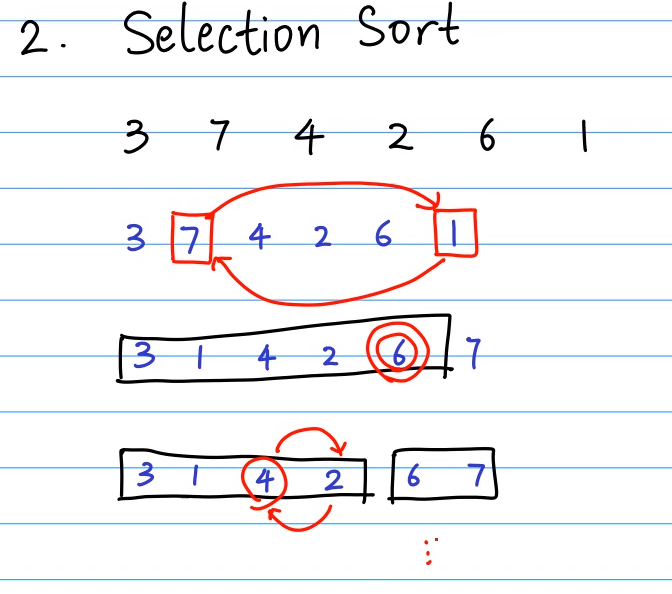 2. Selection Sort
3 7 4 2 6 1
3 7 4 2 6 1
3 1 4 2 6 7
3 1 4 2 6 7